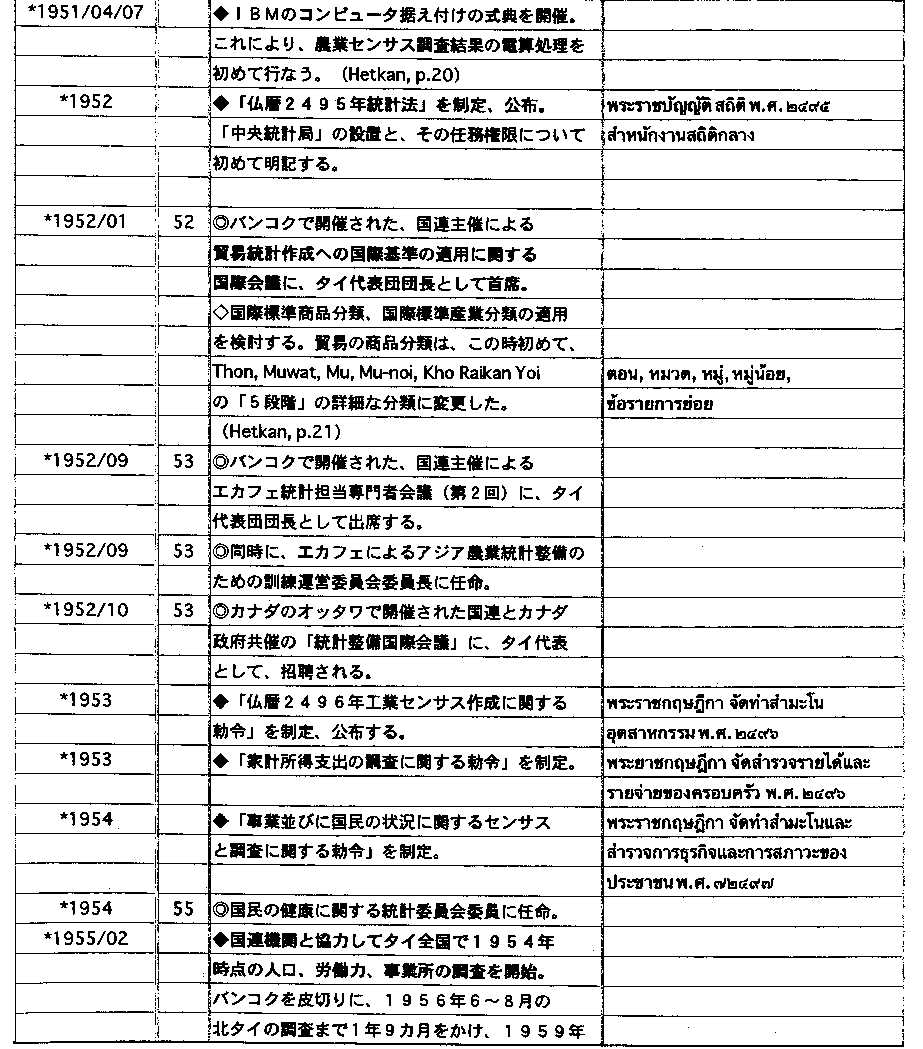 *1951/04/07 ◆ＩＢＭのコンピュータ据え付けの式典を開催。
これにより、農業センサス調査結果の電算処理を
初めて行なう。（Hetkan, p.20）
*1952 ◆「仏暦２４９５年統計法」を制定、公布。 พระราชบัญญัติ สถิติ พ.ศ. ๒๔๙๕
「中央統計局」の設置と、その任務権限について สำหนักงานสถิติกลาง
初めて明記する。
*1952/01 52 ◎バンコクで開催された、国連主催による
貿易統計作成への国際基準の適用に関する
国際会議に、タイ代表団団長として首席。
◇国際標準商品分類、国際標準産業分類の適用
を検討する。貿易の商品分類は、この時初めて、
Thon, Muwat, Mu, Mu-noi, Kho Raikan Yoi ตอน, หมวด, หมู่, หมู่น้อย,
の「５段階」の詳細な分類に変更した。 ข้อรายการย่อย
（Hetkan, p.21）
*1952/09 53 ◎バンコクで開催された、国連主催による
エカフェ統計担当専門者会議（第２回）に、タイ
代表団団長として出席する。
*1952/09 53 ◎同時に、エカフェによるアジア農業統計整備の
ための訓練運営委員会委員長に任命。
*1952/10 53 ◎カナダのオッタワで開催された国連とカナダ
政府共催の「統計整備国際会議」に、タイ代表
として、招聘される。
*1953 ◆「仏暦２４９６年工業センサス作成に関する พระราชกฤษฎีกา จัดทำสำมะโน
勅令」を制定、公布する。 อุตสาหกรรม พ.ศ. ๒๔๙๖
*1953 ◆「家計所得支出の調査に関する勅令」を制定。 พระยาชกฤษฎีกา จัดสำรวจรายได้และ
รายจ่ายของครอบครัว พ.ศ. ๒๔๙๖
*1954 ◆「事業並びに国民の状況に関するセンサス พระราชกฤษฎีกา จัดทำสำมะโนและ
と調査に関する勅令」を制定。 สำรวจการธุรกิจและการสภาวะของ
ประชาชน พ.ศ. ๗๒๔๙๗
*1954 55 ◎国民の健康に関する統計委員会委員に任命。
*1955/02 ◆国連機関と協力してタイ全国で１９５４年
時点の人口、労働力、事業所の調査を開始。
バンコクを皮切りに、１９５６年６～８月の
北タイの調査まで1年９カ月をかけ、１９５９年